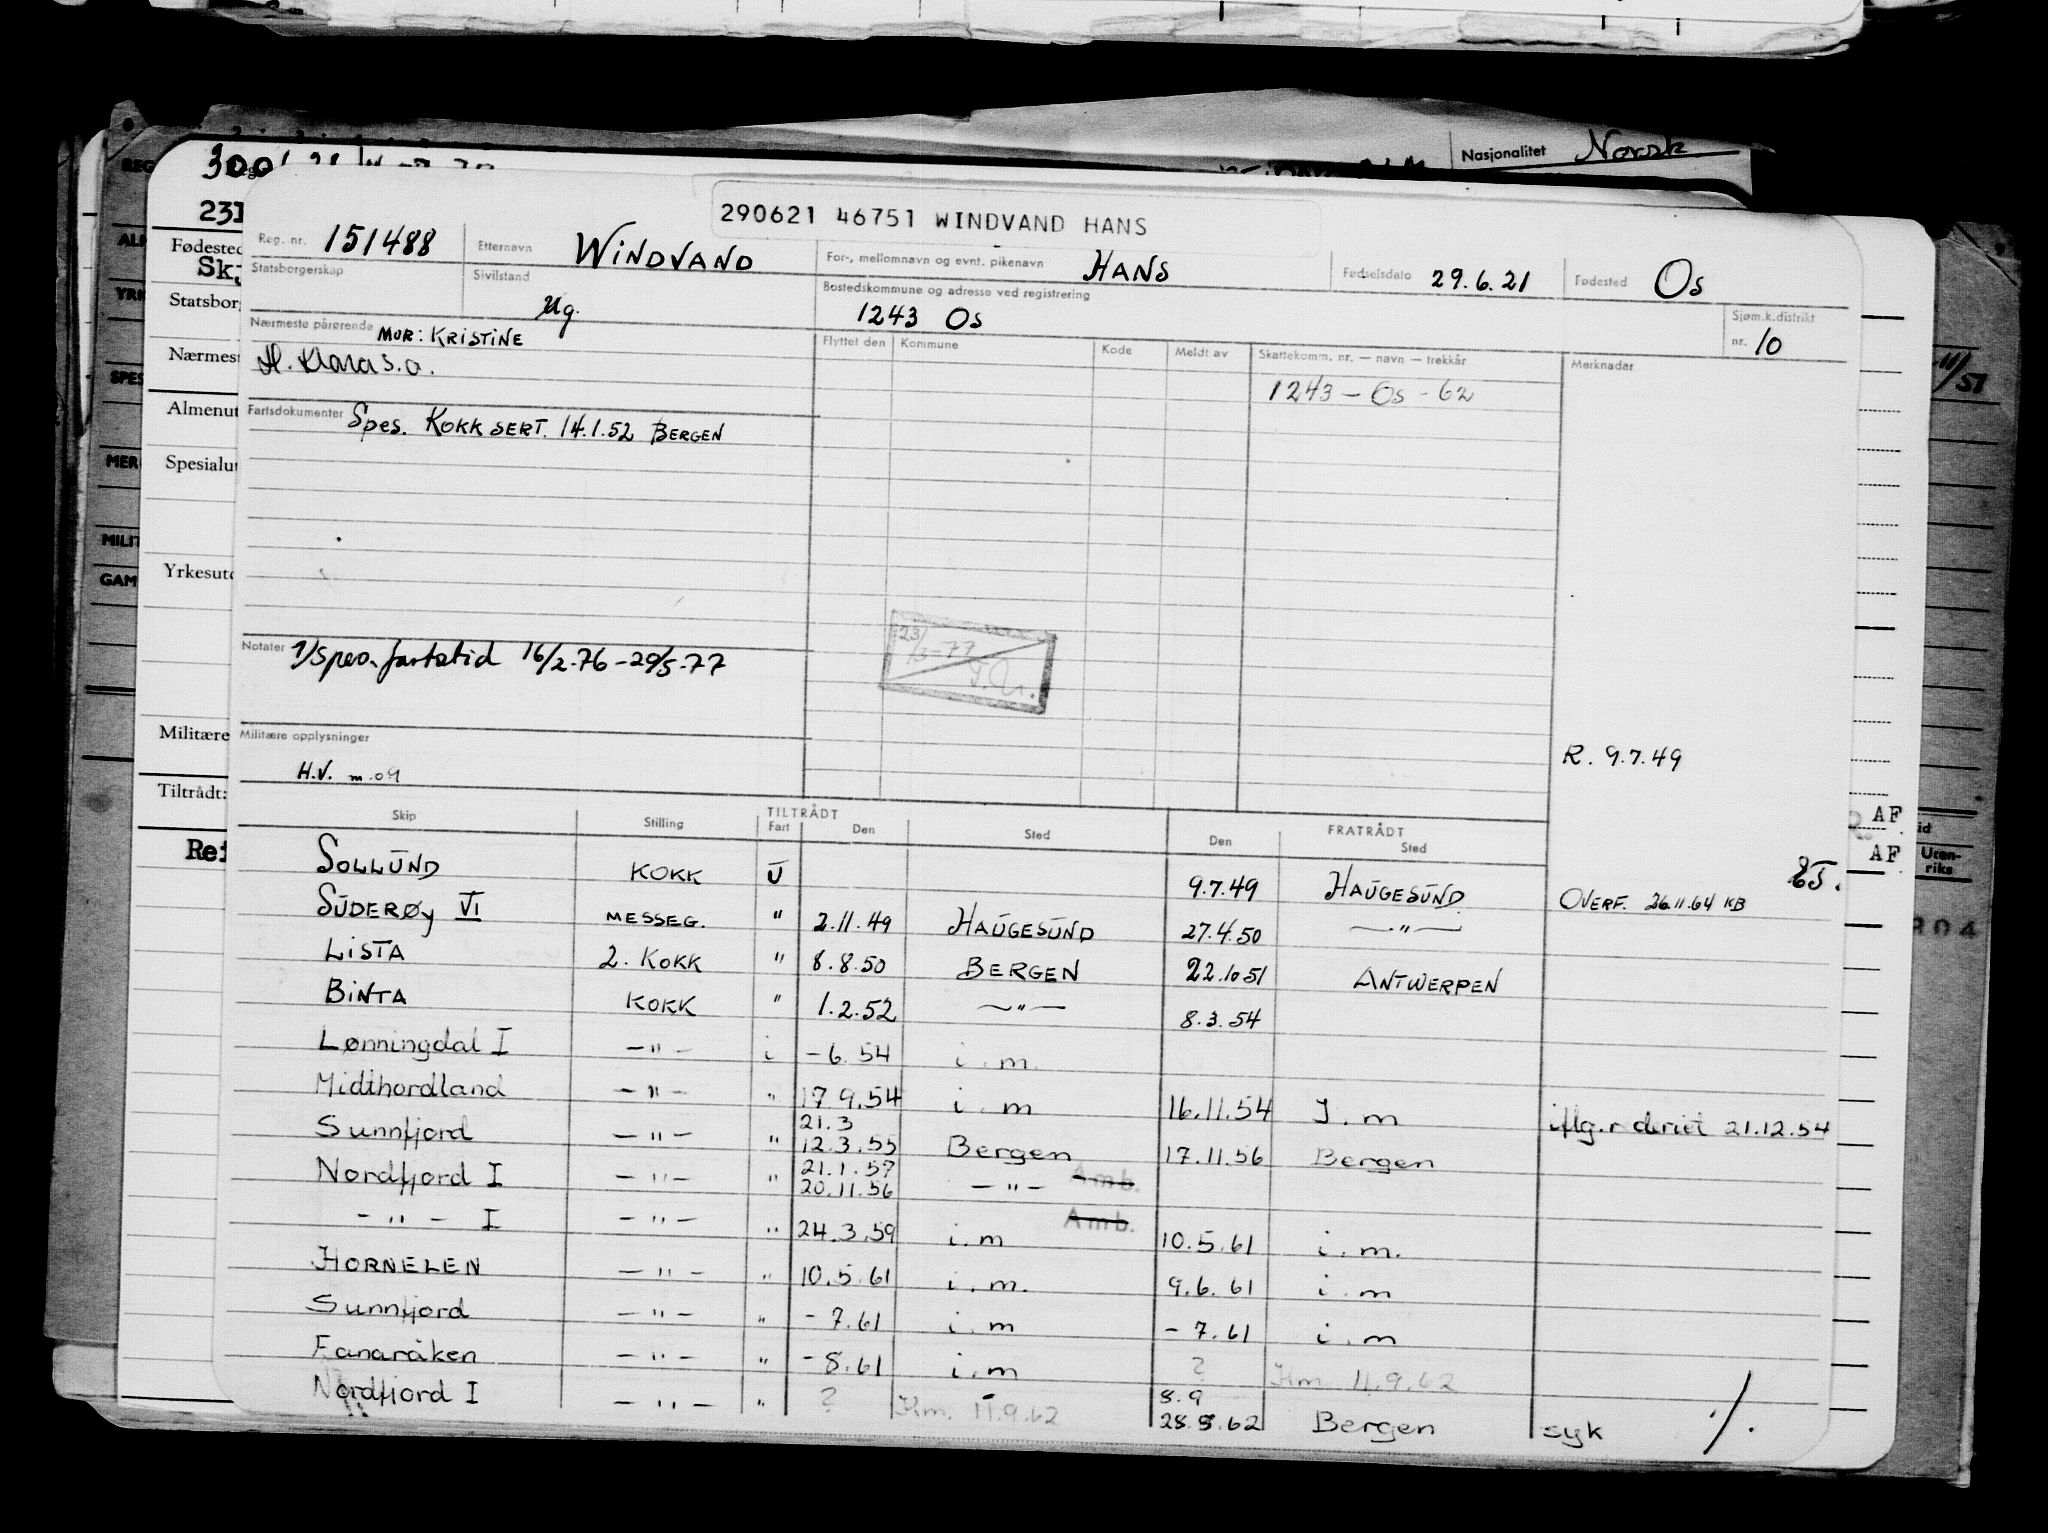 Nasjonalitet Norsk
300
231
290621 46751 WINDVAND HANS
Reg. nr. 151488 Etternavn WINDVAND For-, mellomnavn og evnt. pikenavn HANS Fødselsdato 29.6.21 Fødested Os
Statsborgerskap Sivilstand Ug. Bostedskommune og adresse ved registrering 1243 Os Sjøm.k.distrikt nr. 10
Nærmeste pårørende MOR: KRISTINE Flyttet den Kommune Kode Meldt av Skattekomm. nr. — navn — trekkår Merknader
H. Klara s.a.
1243 - Os - 62
Fartsdokumenter Spes. KOKKSERT. 14.1.52 BERGEN
Notater 1/spes. fartstid 16/2-76-29/5-77
23/3-77
Militære opplysninger
H.V. m.09
R. 9.7.49
Skip Stilling TILTRÅDT Fart Den Sted FRATRÅDT Den Sted
SOLLUND KOKK U 9.7.49 HAUGESUND OVERF. 26.11.64 KB
SUDERØY VI MESSEG. " 2.11.49 HAUGESUND 27.4.50 —"—
LISTA 2. KOKK " 8.8.50 BERGEN 22.10.51 ANTWERPEN
BINTA KOKK " 1.2.52 —"— 8.3.54
Lønningdal I -"- i -6.54 i.m.
Midthordland -"- " 17.9.54 i.m 16.11.54 I.m iflg.r diriet 21.12.54
21.3
Sunnfjord -"- " 12.3.55 Bergen 17.11.56 Bergen
21.1.57
Nordfjord I -"- " 20.11.56 -"- Amb.
-"- I -"- " 24.3.59 i.m Amb. 10.5.61 i.m.
HORNELEN -"- " 10.5.61 i.m. 9.6.61 i.m
Sunnfjord -"- " -7.61 i.m -7.61 i.m
Fanaråken -"- " -8.61 i.m ? Km. 4.9.62
8.9
Nordfjord I -"- " ? Km. 11.9.62 28.8.62 Bergen syk ./.
REG
ALM
YRK
SPES
MER
MILIT
GAM
Fødested
Skj
Statsbor
Nærmest
Almenut
Spesialut
Yrkesutd
Militære
Tiltrådt:
Rei
11/51
AF
AF
id
Uten-
riks
304